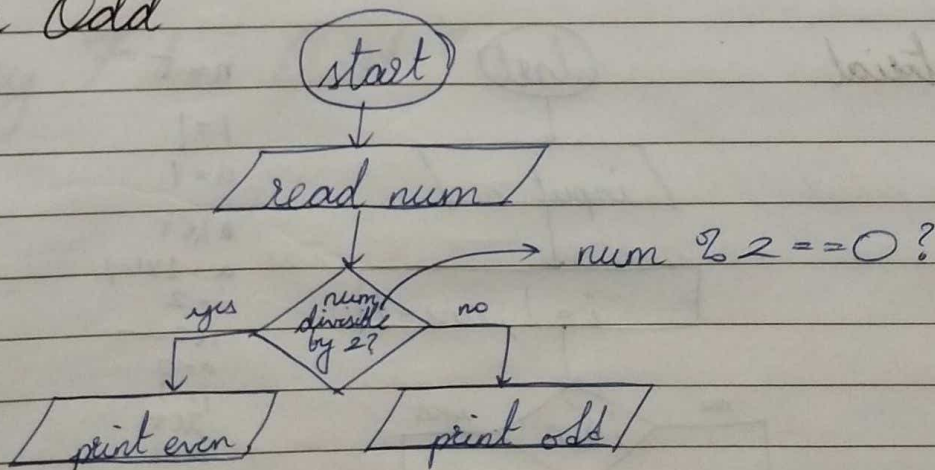 Odd
start
read num
num % 2 == 0 ?
yes
num
divisible
by 2?
no
print even
print odd